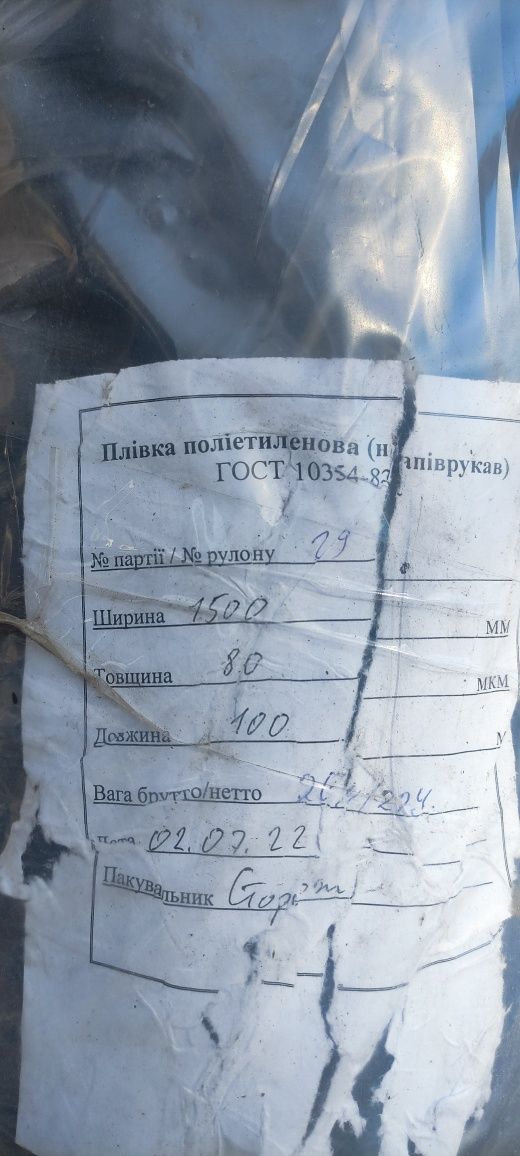 Плівка поліетиленова (напіврукав)
ГОСТ 10354-82
№ партії / № рулону 29
Ширина 1500 мм
Товщина 80 мкм
Довжина 100 м
Вага брутто/нетто
Дата 02.07.22
Пакувальник